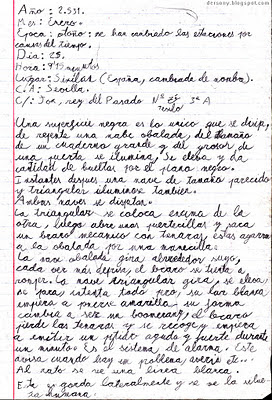 dcisony.blogspot.com
Año: 2.531.
Mes: Enero.
Epoca: otoño: se han cambiado las estaciones por
causas del tiempo.
Día: 25.
Hora: 9'15 minutos
Lugar: Sinilas (España, cambiado de nombre).
C.A: Sevilla.
C/: Jox, rey del Pasado Nº 3º A
Una superficie negra es lo unico que se divisa,
de repente una nabe obalada, del tamaño
de un cuaderno grande y del grosor de
una puerta se ilumina, se eleba y da
cantidad de bueltas por el plano negro.
Instantes despues una nave de tamaño parecido
y triangular iluminose tambien.
Ambas naves se disputan.
La triangular se coloca encima de la
otra, luego abre unas puertecillas y saca
un brazo mecanico con tenazas, estas agarran
a la obalada por una manecilla.
La nave obalada gira alrrededor suyo,
cada vez más deprisa, el brazo se tuerce a
romper. La nave triangular gira, se eleva,
se para, intenta todo pero, su luz blanca
empieza a ponerse amarilla, su forma
cambia a ser un boomerang, el brazo
pierde las tenazas y se recoge y empieza
a emitir un pitido agudo y fuerte durante
un minuto. Es el sistema de alarma. Este
avisa cuando hay un problema, averia etc...
Al rato se ve una linea blanca.
Este se gorda lateralmente y se ve la silue-
ta humana: